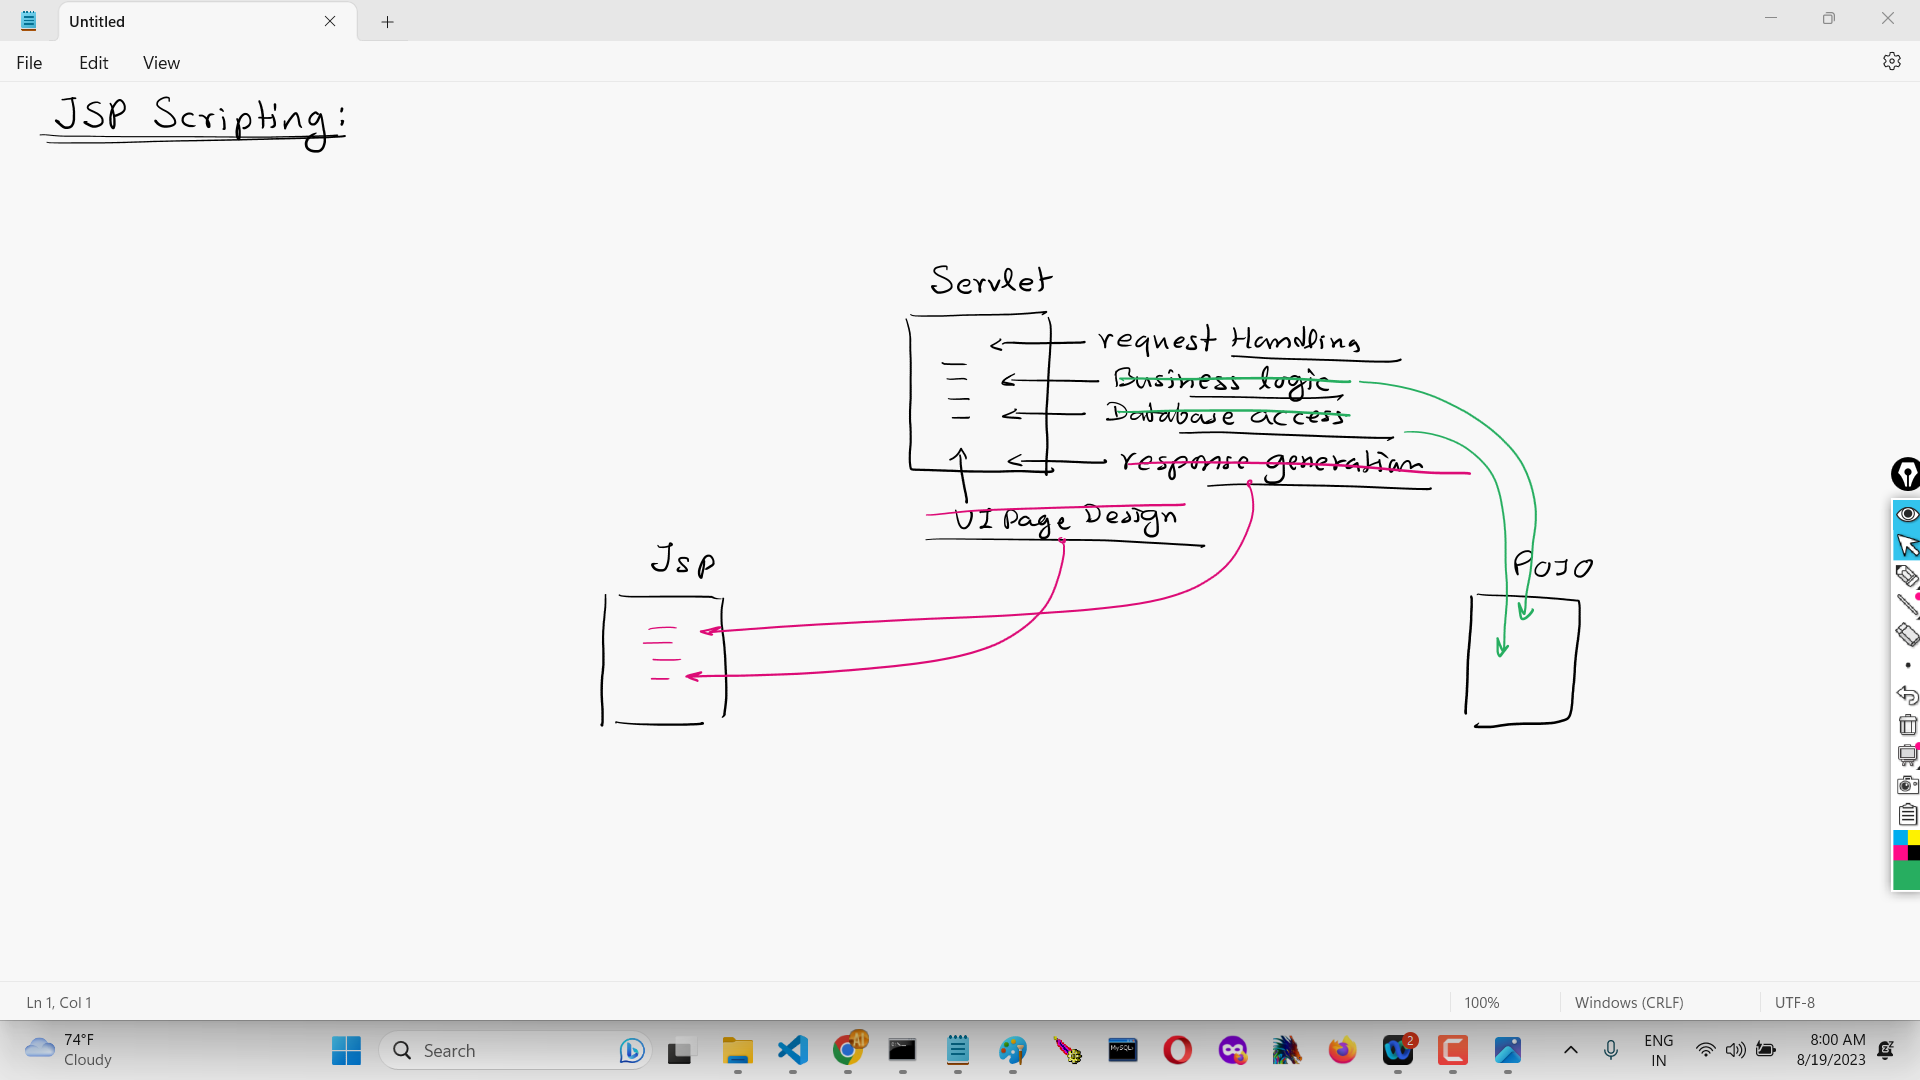 Untitled
File Edit View
JSP Scripting:
Servlet
request Handling
Business logic
Database access
response generation
UI Page Design
Jsp
POJO
Ln 1, Col 1
100%
Windows (CRLF)
UTF-8
74°F
Cloudy
Search
AI
MySQL
2
ENG
IN
8:00 AM
8/19/2023